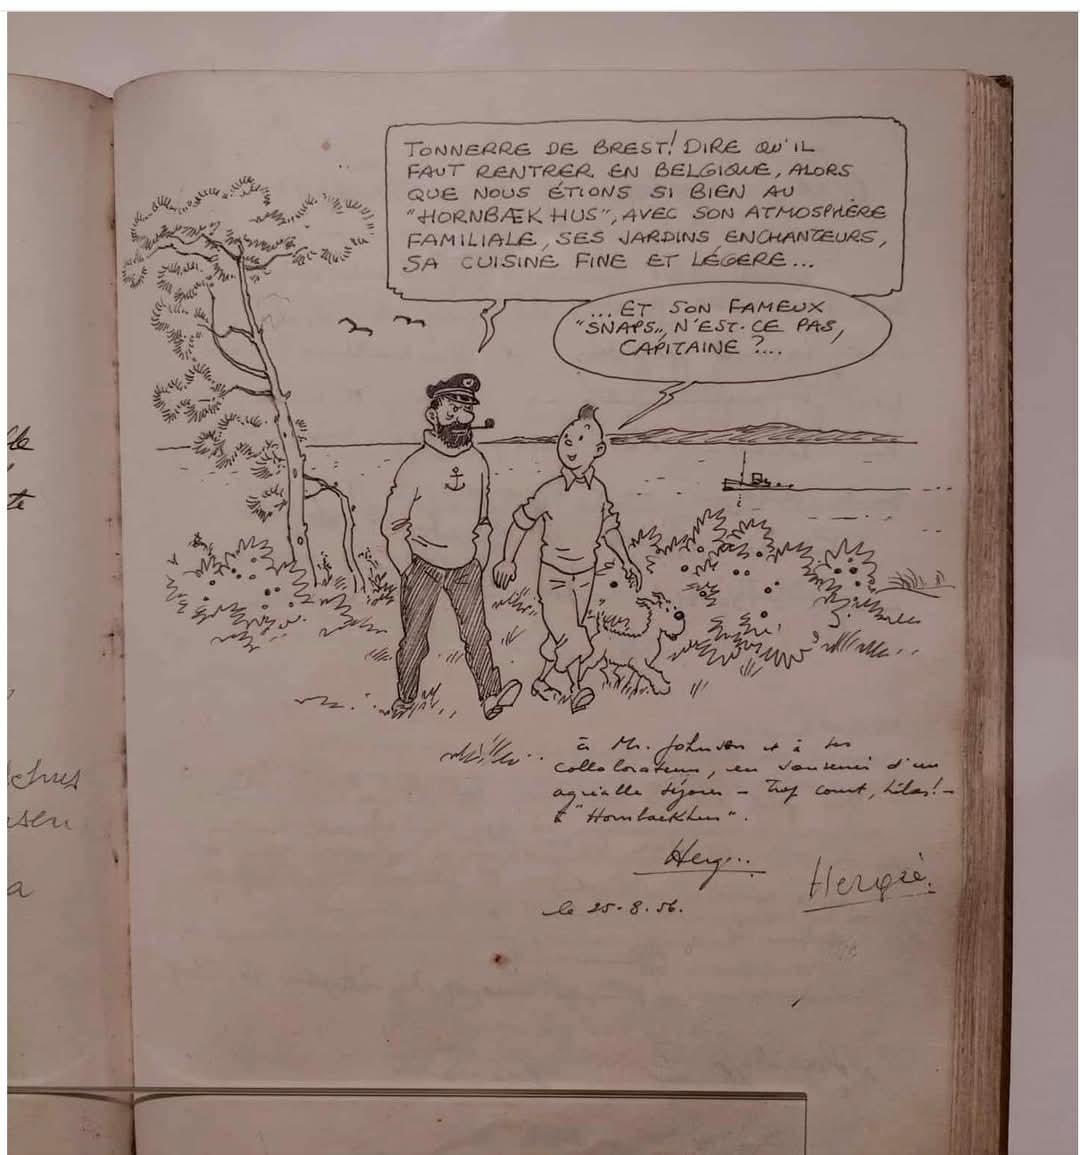 TONNERRE DE BREST! DIRE QU'IL
FAUT RENTRER EN BELGIQUE, ALORS
QUE NOUS ÉTIONS SI BIEN AU
"HORNBÆK HUS", AVEC SON ATMOSPHÈRE
FAMILIALE, SES JARDINS ENCHANTEURS,
SA CUISINE FINE ET LÉGÈRE...
... ET SON FAMEUX
"SNAPS", N'EST-CE PAS,
CAPITAINE ?...
à Mr. Johnson et à ses
collaborateurs, en souvenir d'un
agréable séjour – Trop court, hélas! –
à "Hornbaekhus".
Hergé
Hergé
le 25-8.56.
te
a